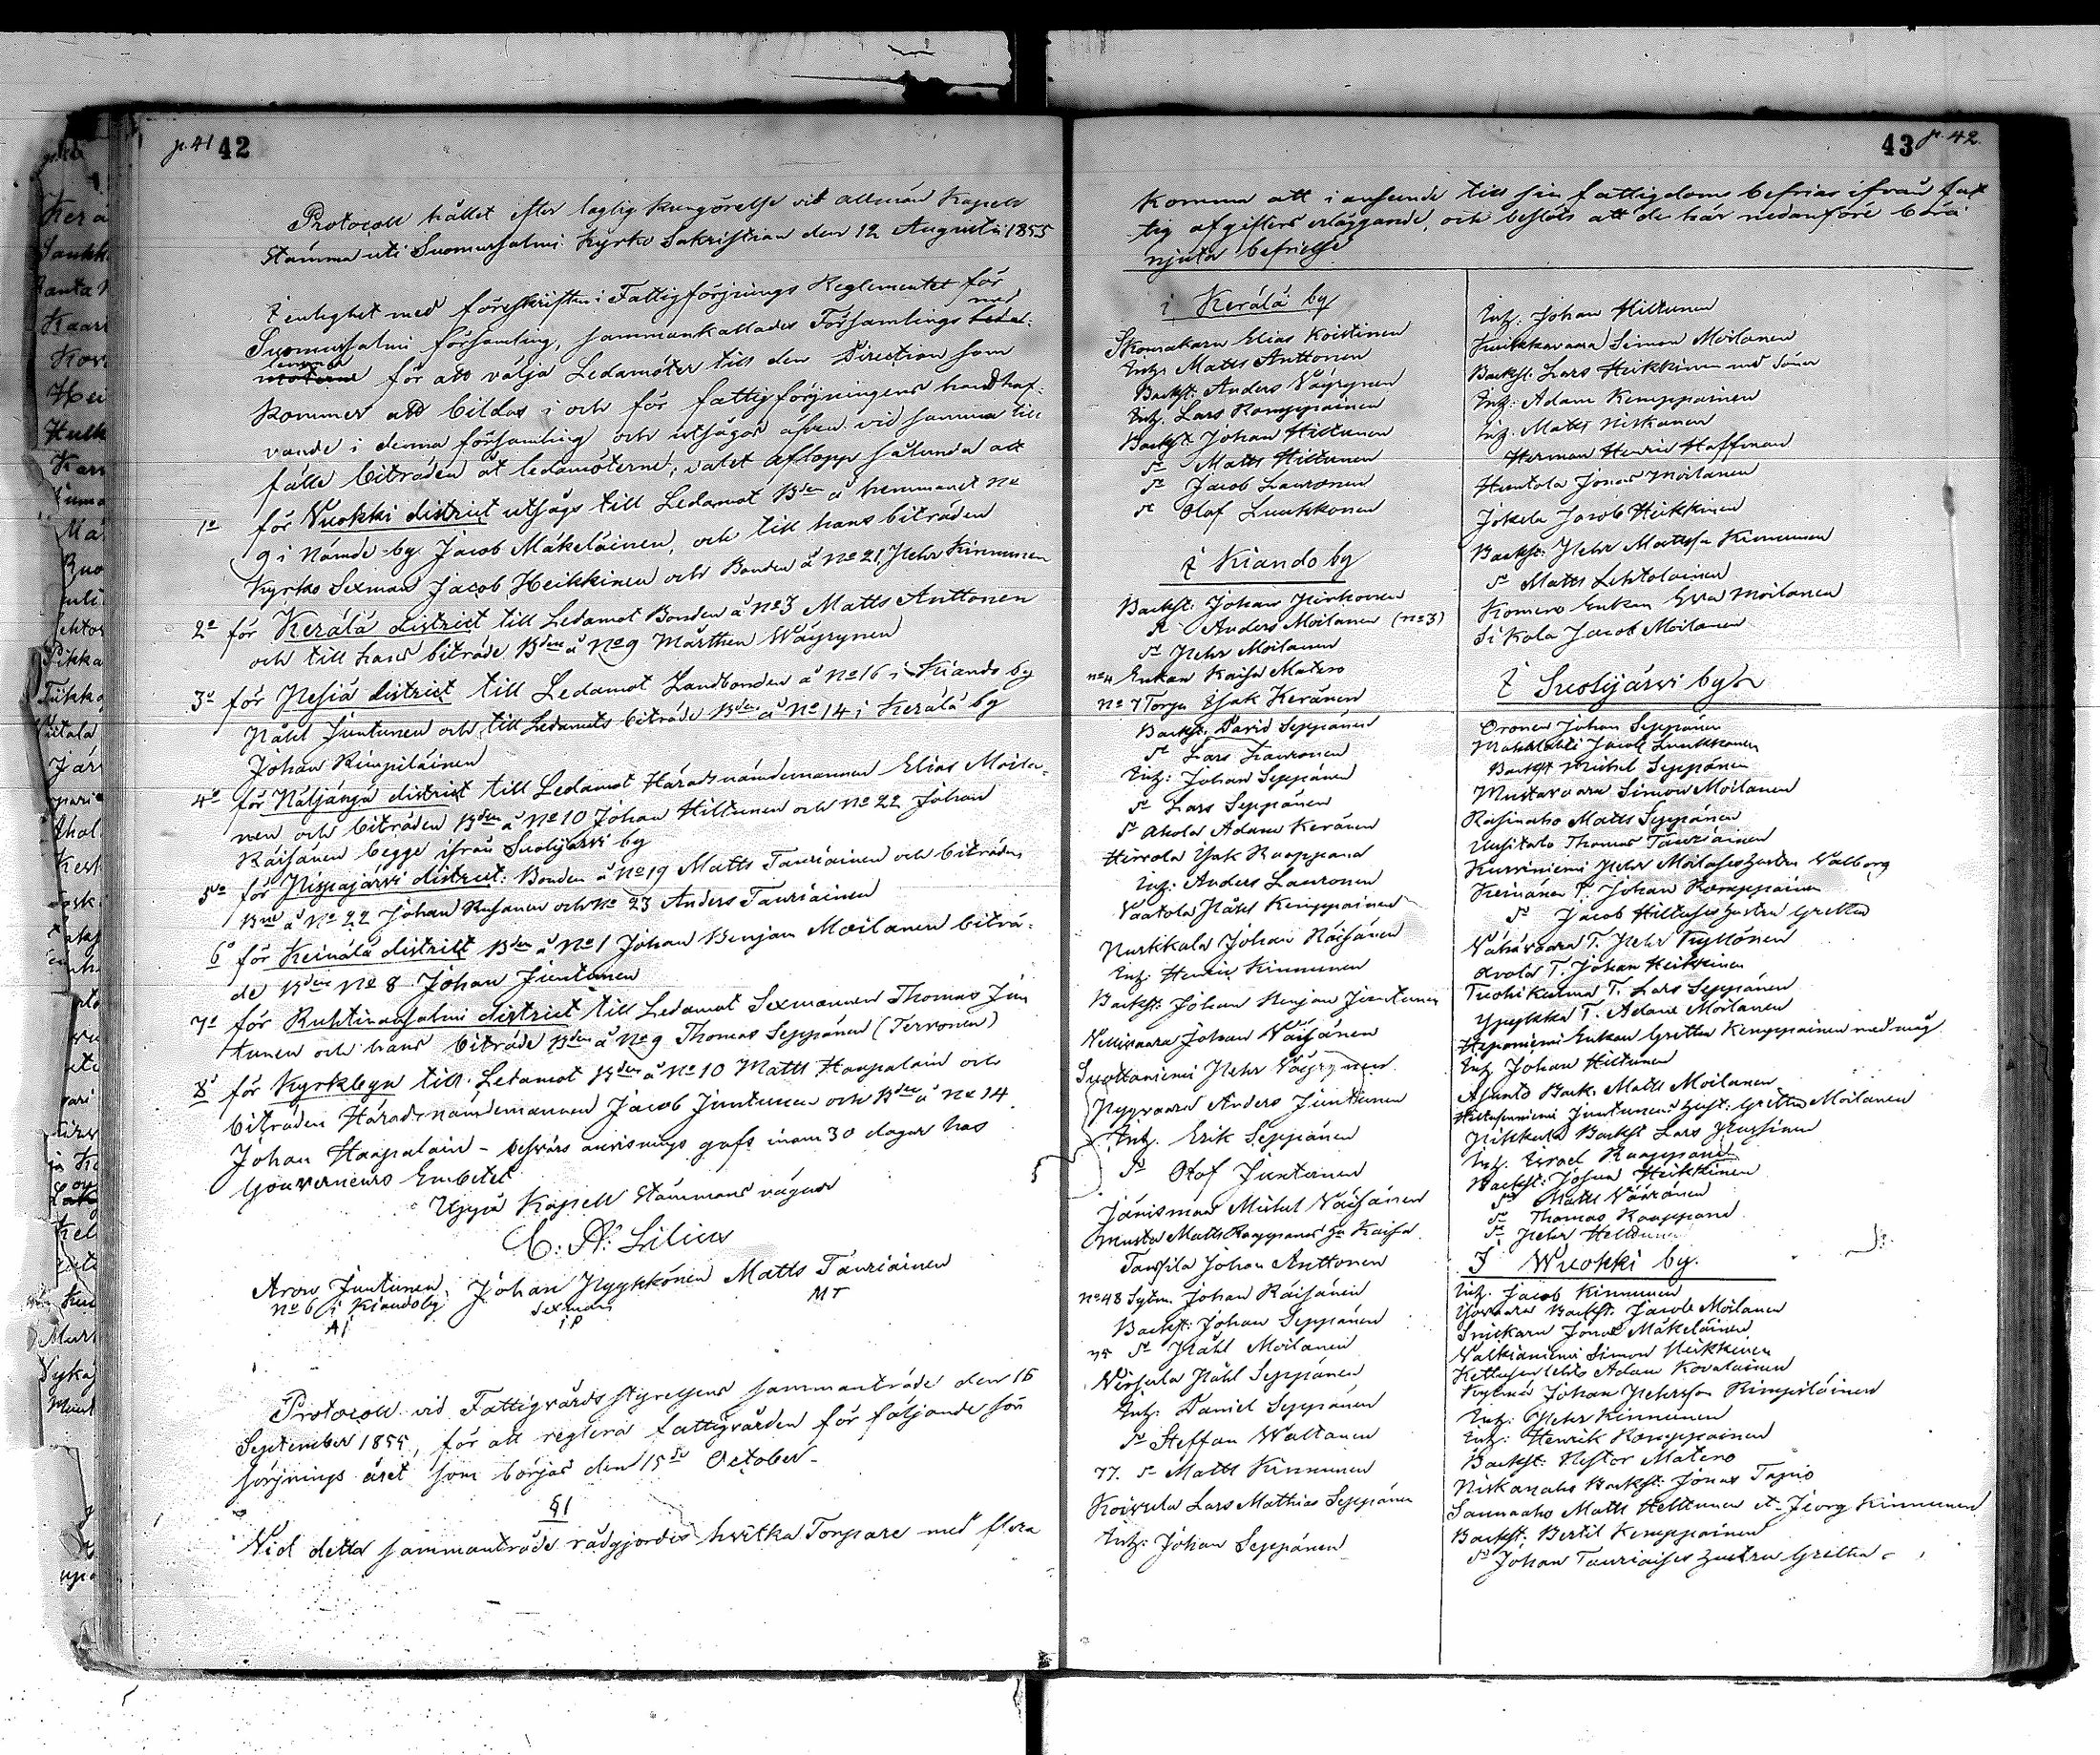 p. 41 42
Protocoll hållet efter laglig kungörelse vid allmän Kapell
stämma uti Suomussalmi Kyrko Sakristian den 12 Augusti 1855
I enlighet med föreskriften i Fattigförsörjnings Reglementet för
Suomussalmi församling, sammankallades Församlings med
lemma för att välja Ledamöter till den Direction som
kommer att bildas i och för fattigförsörjningens handhaf-
vande i denna församling och utsågos afven vid samma till
fälle biträden åt ledamöterne; valet aflopp sålunda att
1o för Vuokki district utsågs till Ledamot Bden å hemmanet No
9 i Nämde by Jacob Mäkeläinen, och till hans biträden
Kyrko Sexman Jacob Heikkinen och Bonden å No 21, Pehr Kinnunen
2o för Kerälä district till Ledamot Bonden å No 3 Matts Anttonen
och till hans biträde Bden å No 9 Mårthen Wäyrynen
3o för Pesiä district till Ledamot Landbonden å No 16 i Kiando by
Påhl Juntunen och till Ledamots biträde Bden å No 14 i Kerälä by
Johan Rimpiläinen
4o för Näljängä district till Ledamot Häradsnämdemannen Elias Moila-
nen och biträden Bden å No 10 Johan Hiltunen och No 22 Johan
Räisänen begge ifrån Suolijärvi by
5o för Pispajärvi district: Bonden å No 19 Matts Tauriainen och biträden
Bne å No 22 Johan och No 23 Anders Tauriainen
6o för Keinälä district Bden å No 1 Johan Benjam Moilanen biträ-
de Bden No 8 Johan Juntunen
7o för Ruhtinansalmi district till Ledamot Sexmannen Thomas Jun
tunen och hans biträde Bden å No 9 Thomas Seppänen (Tervonen)
8o för Kyrkbyn till Ledamot Bden å No 10 Matts Haapalain och
biträden Häradsnämdemannen Jacob Juntunen och Bden å No 14
Johan Haapalain - besvärs anvisnings gafs inom 30 dagar hos
Gouverneurs Embetet
Uppå Kapell Stämmans vägnar
C. A. Lilius
Aron Juntunen Johan Pyykkönen Matts Tauriainen
No 6 i Kiandoby Sexman MT
AJ IP
Protocoll vid Fattigvårdsstyrelsens sammanträde den 16
September 1855, för att reglera fattigvården för följande för
sörjnings året som börjas den 15de October
§1
Vid detta sammanträde rådgjordes hvilka Torpare med flera
43 p. 42
komma att i anseende till sin fattigdoms befrias ifrån fat
tig afgifters erläggande, och beslöts att de här nedanföre böra
njuta befrielse
i Kerälä by
Skomakarn Elias Koistinen
Inh. Matts Anttonen
Backst. Anders Väyrynen
Inh. Lars Kemppainen
Backst. Johan Hiltunen
dt Matts Hiltunen
dt Jacob Lauronen
dt Olof Luukkonen
I Kiando by
Backst. Johan
dt Anders Moilanen (No 3)
dt Pehr Moilanen
No 4 Enkan Kaisa Matero
No 7 Torpn Isak Keränen
Backst. David Seppänen
dt Lars Lauronen
Inh: Johan Seppänen
dt Lars Seppänen
dt Ahola Adam Keränen
Hirvola Isak Kaappana
Inh: Anders Lauronen
Vaatola Påhl Kemppainen
Purkkala Johan Räisänen
Inh: Henric Kinnunen
Backst: Johan Benjam Juntunen
Vellivaara Johan Väisänen
Suottaniemi Pehr Väyrynen
Pyyvaara Anders Juntunen
Inh. Erik Seppänen
dt Olof Juntunen
Jänismaa Michel Väisänen
Musta Matts Kaappanas Ea Kaisa
Tanssila Johan Anttonen
No 48 Sytm. Johan Räisänen
Backst: Johan Seppänen
75 dt Påhl Moilanen
Virsula Påhl Seppänen
Inh: Daniel Seppänen
dt Steffan Waltanen
77. dt Matts Kinnunen
Koivula Lars Mathias Seppänen
Inh: Johan Seppänen
Inh: Johan Hiltunen
Kuikkavaara Simon Moilanen
Backst: Lars Heikkinen med söner
Inh: Adam Kemppainen
Inh. Matts Niskanen
Herman Henric Hoffman
Huntola Jonas Moilanen
Jokela Jacob Heikkinen
Backst: Pehr Mattss Kinnunen
dt Matts Lehtolainen
Komero Enkan Eva Moilanen
Sikola Jacob Moilanen
I Suolijärvi by
Oronen Johan Seppänen
Jacob Luukkonen
Backst Michel Seppänen
Mustavaara Simon Moilanen
Rasinaho Matts Seppänen
Uusitalo Thomas Tauriainen
Kurvinniemi Pehr hustru Valborg
Keinänen T: Johan Kemppainen
dt Jacob hustru Gretha
Vähävaara T. Pehr Kyllönen
Avola T. Johan Heikkinen
Tuohikumu T. Lars Seppänen
T. Adam Moilanen
Enkan Gretha Kemppainen med måg
Inh Johan Hiltunen
Back. Matts Moilanen
Juntunens hust: Gretha Moilanen
Pikkula Backst Lars
Inh. Israel Kaappana
Backst: Johan Heikkinen
dt Matts Väänänen
dt Thomas Kaappana
dt Pehr Heltunen
I Wuokki by.
Inh. Jacob Kinnunen
Backst. Jacob Moilanen
Snickarn Jonas Mäkeläinen
Valkianiemi Simon Heikkinen
Adam Kovalainen
Johan Pehrsson Rimpiläinen
Inh: Pehr Kinnunen
Inh: Henrik Kemppainen
Backst: Nestor Matero
Niskanaho Backst: Jonas Tapio
Saunaaho Matts Heltunen dt Georg Kinnunen
Backst. Bertil Kemppainen
dt Johan hustru Gretha